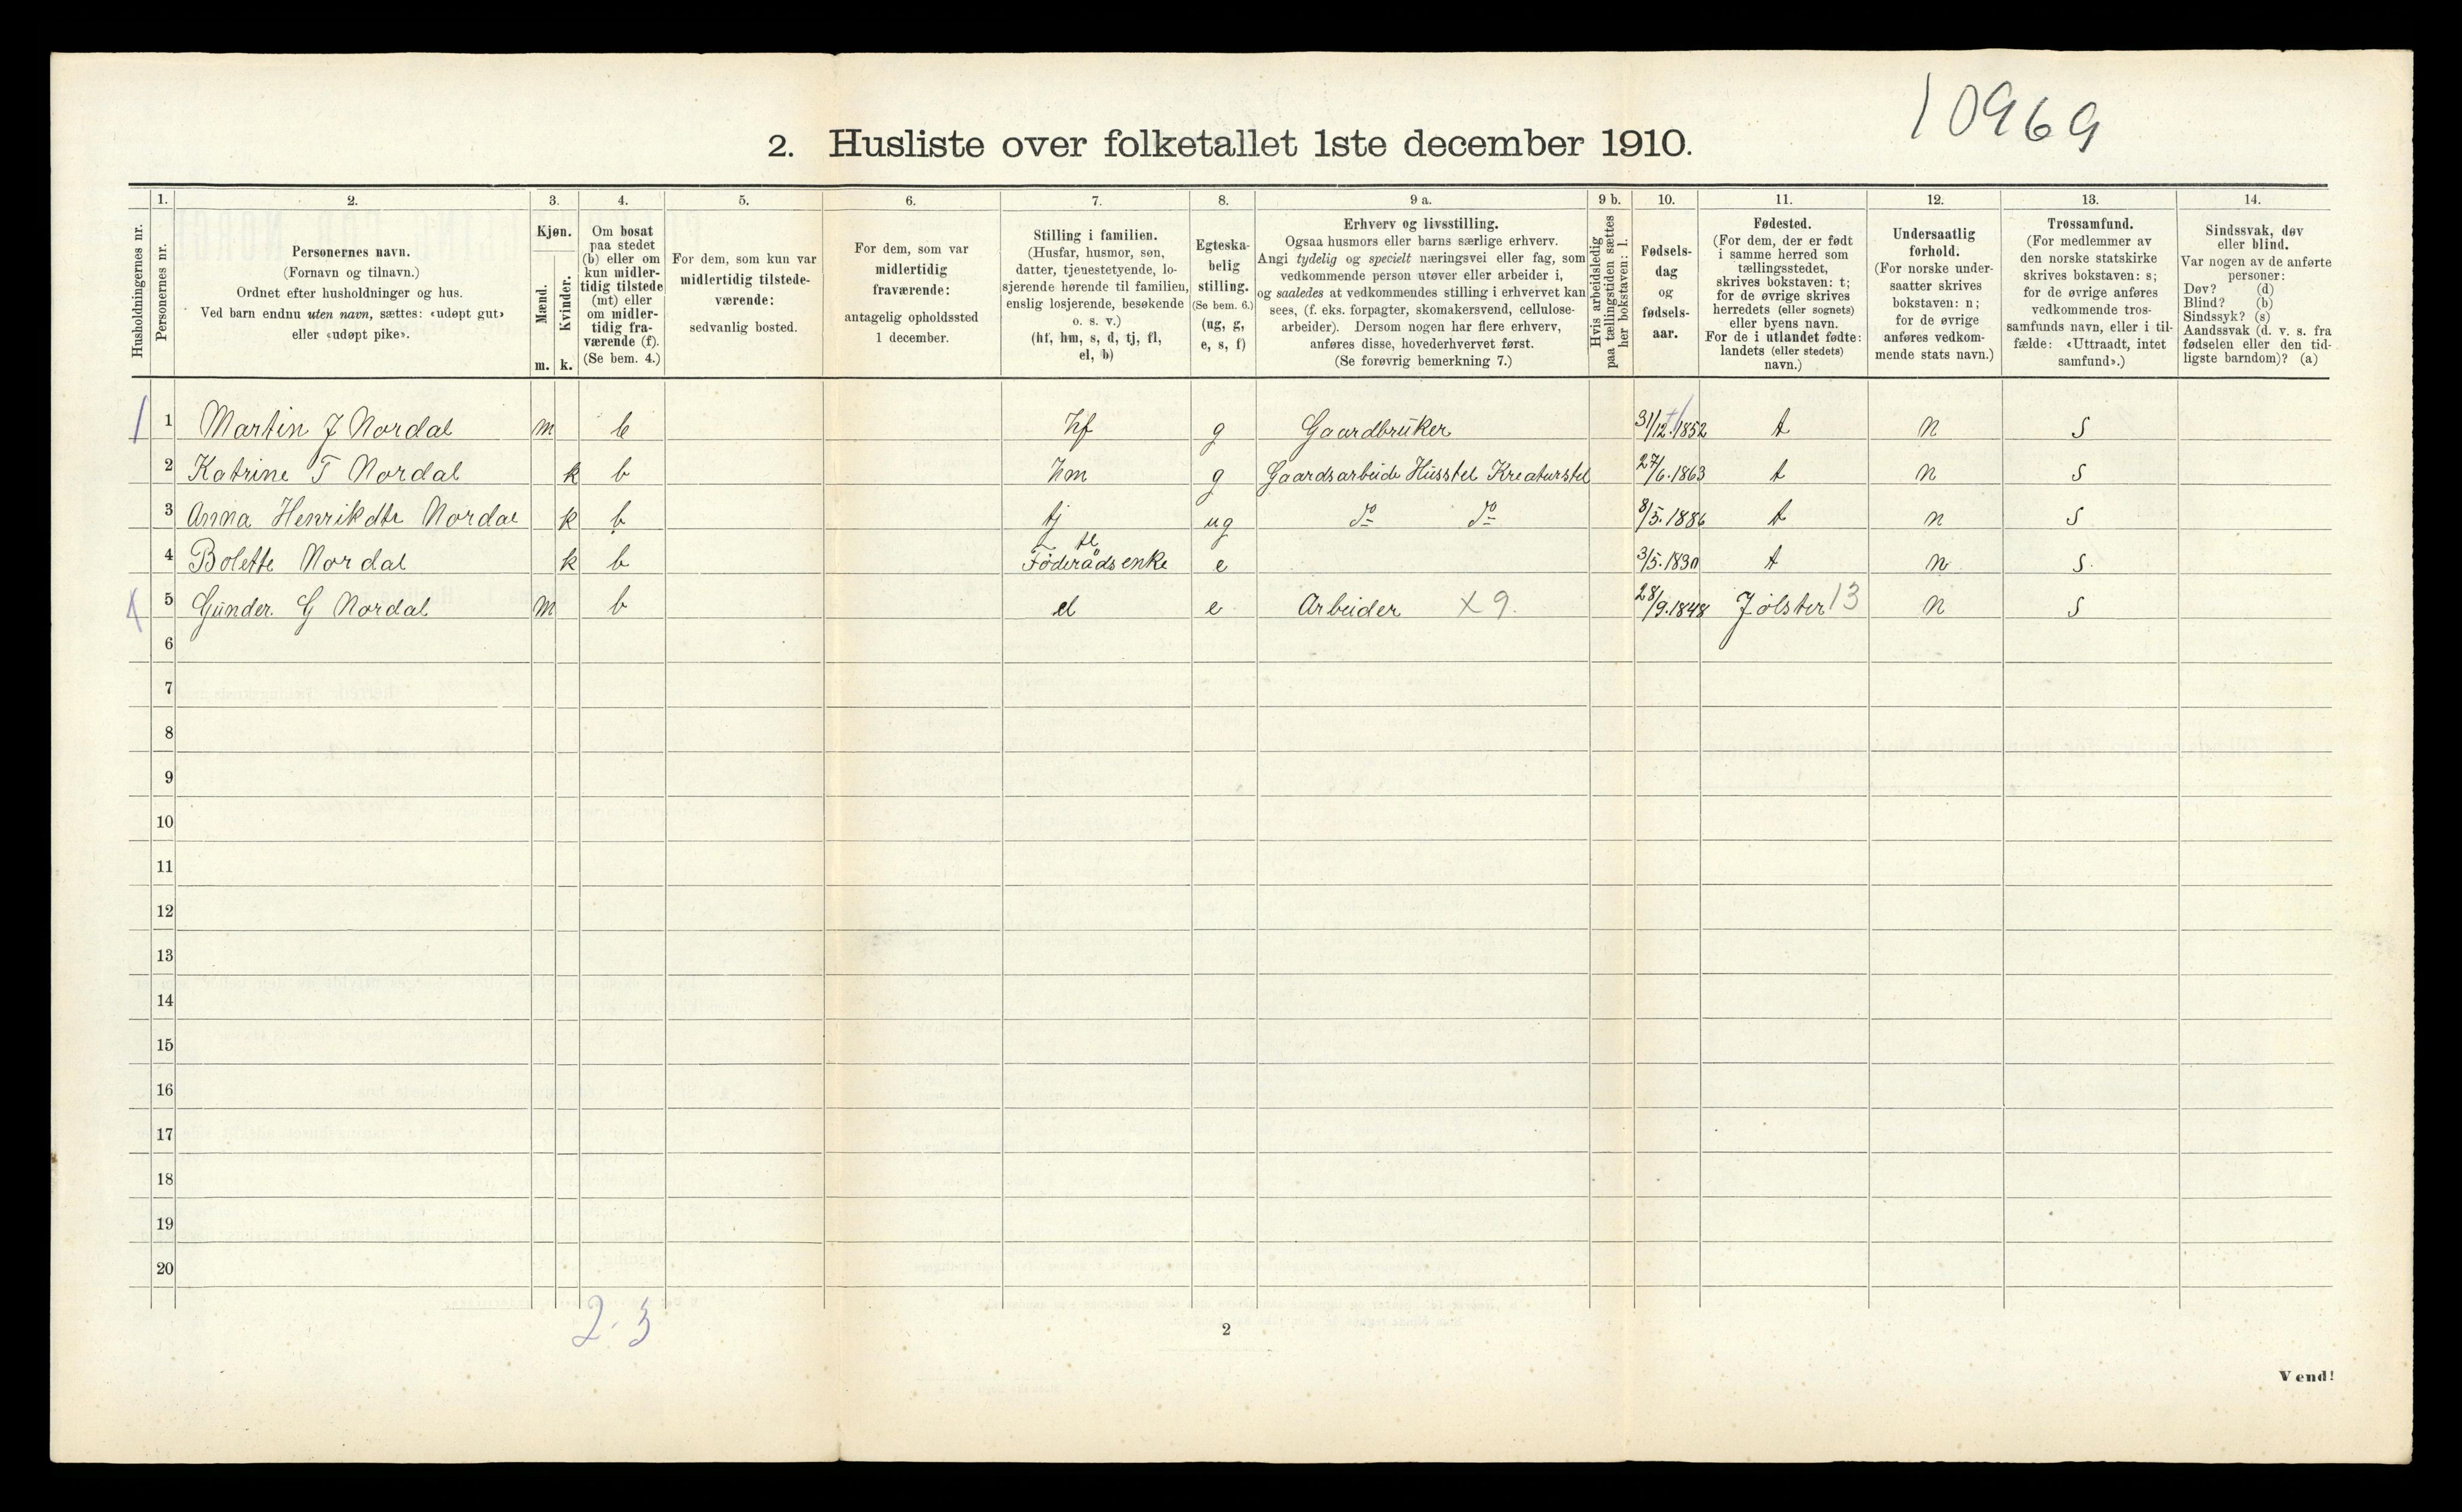 10969
2. Husliste over folketallet 1ste december 1910.
Husholdningernes nr.
1. Personernes nr.
2. Personernes navn.
(Fornavn og tilnavn.)
Ordnet efter husholdninger og hus.
Ved barn endnu uten navn, sættes: «udøpt gut»
eller «udøpt pike».
3. Kjøn.
Mænd. Kvinder.
m. k.
4. Om bosat
paa stedet
(b) eller om
kun midler-
tidig tilstede
(mt) eller
om midler-
tidig fra-
værende (f).
(Se bem. 4.)
5. For dem, som kun var
midlertidig tilstede-
værende:
sedvanlig bosted.
6. For dem, som var
midlertidig
fraværende:
antagelig opholdssted
1 december.
7. Stilling i familien.
(Husfar, husmor, søn,
datter, tjenestetyende, lo-
sjerende hørende til familien,
enslig losjerende, besøkende
o. s. v.)
(hf, hm, s, d, tj, fl,
el, b)
8. Egteska-
belig
stilling.
(Se bem. 6.)
(ug, g,
e, s, f)
9 a. Erhverv og livsstilling.
Ogsaa husmors eller barns særlige erhverv.
Angi tydelig og specielt næringsvei eller fag, som
vedkommende person utøver eller arbeider i,
og saaledes at vedkommendes stilling i erhvervet kan
sees, (f. eks. forpagter, skomakersvend, cellulose-
arbeider). Dersom nogen har flere erhverv,
anføres disse, hovederhvervet først.
(Se forøvrig bemerkning 7.)
9 b. Hvis arbeidsledig
paa tællingstiden sættes
her bokstaven: l.
10. Fødsels-
dag
og
fødsels-
aar.
11. Fødested.
(For dem, der er født
i samme herred som
tællingsstedet,
skrives bokstaven: t;
for de øvrige skrives
herredets (eller sognets)
eller byens navn.
For de i utlandet fødte:
landets (eller stedets)
navn.)
12. Undersaatlig
forhold.
(For norske under-
saatter skrives
bokstaven: n;
for de øvrige
anføres vedkom-
mende stats navn.)
13. Trossamfund.
(For medlemmer av
den norske statskirke
skrives bokstaven: s;
for de øvrige anføres
vedkommende tros-
samfunds navn, eller i til-
fælde: «Uttraadt, intet
samfund».)
14. Sindssvak, døv
eller blind.
Var nogen av de anførte
personer:
Døv? (d)
Blind? (b)
Sindssyk? (s)
Aandssvak (d. v. s. fra
fødselen eller den tid-
ligste barndom)? (a)
1 Martin J Nordal m b hf g Gaardbruker 31/12.1852 t n s
2 Katrine T Nordal k b hm g Gaardsarbeide Husstel Kreaturstel 27/6.1863 t n s
3 Anna Henrikdtr Nordal k b tj ug do do 8/5.1886 t n s
4 Bolette Nordal k b fl Føderådsenke e 3/5.1830 t n s.
5 Gunder G Nordal m b el e Arbeider X 9. 28/9.1848 Jølster 13 n s
6
7
8
9
10
11
12
13
14
15
16
17
18
19
20
2. 3
2
Vend!